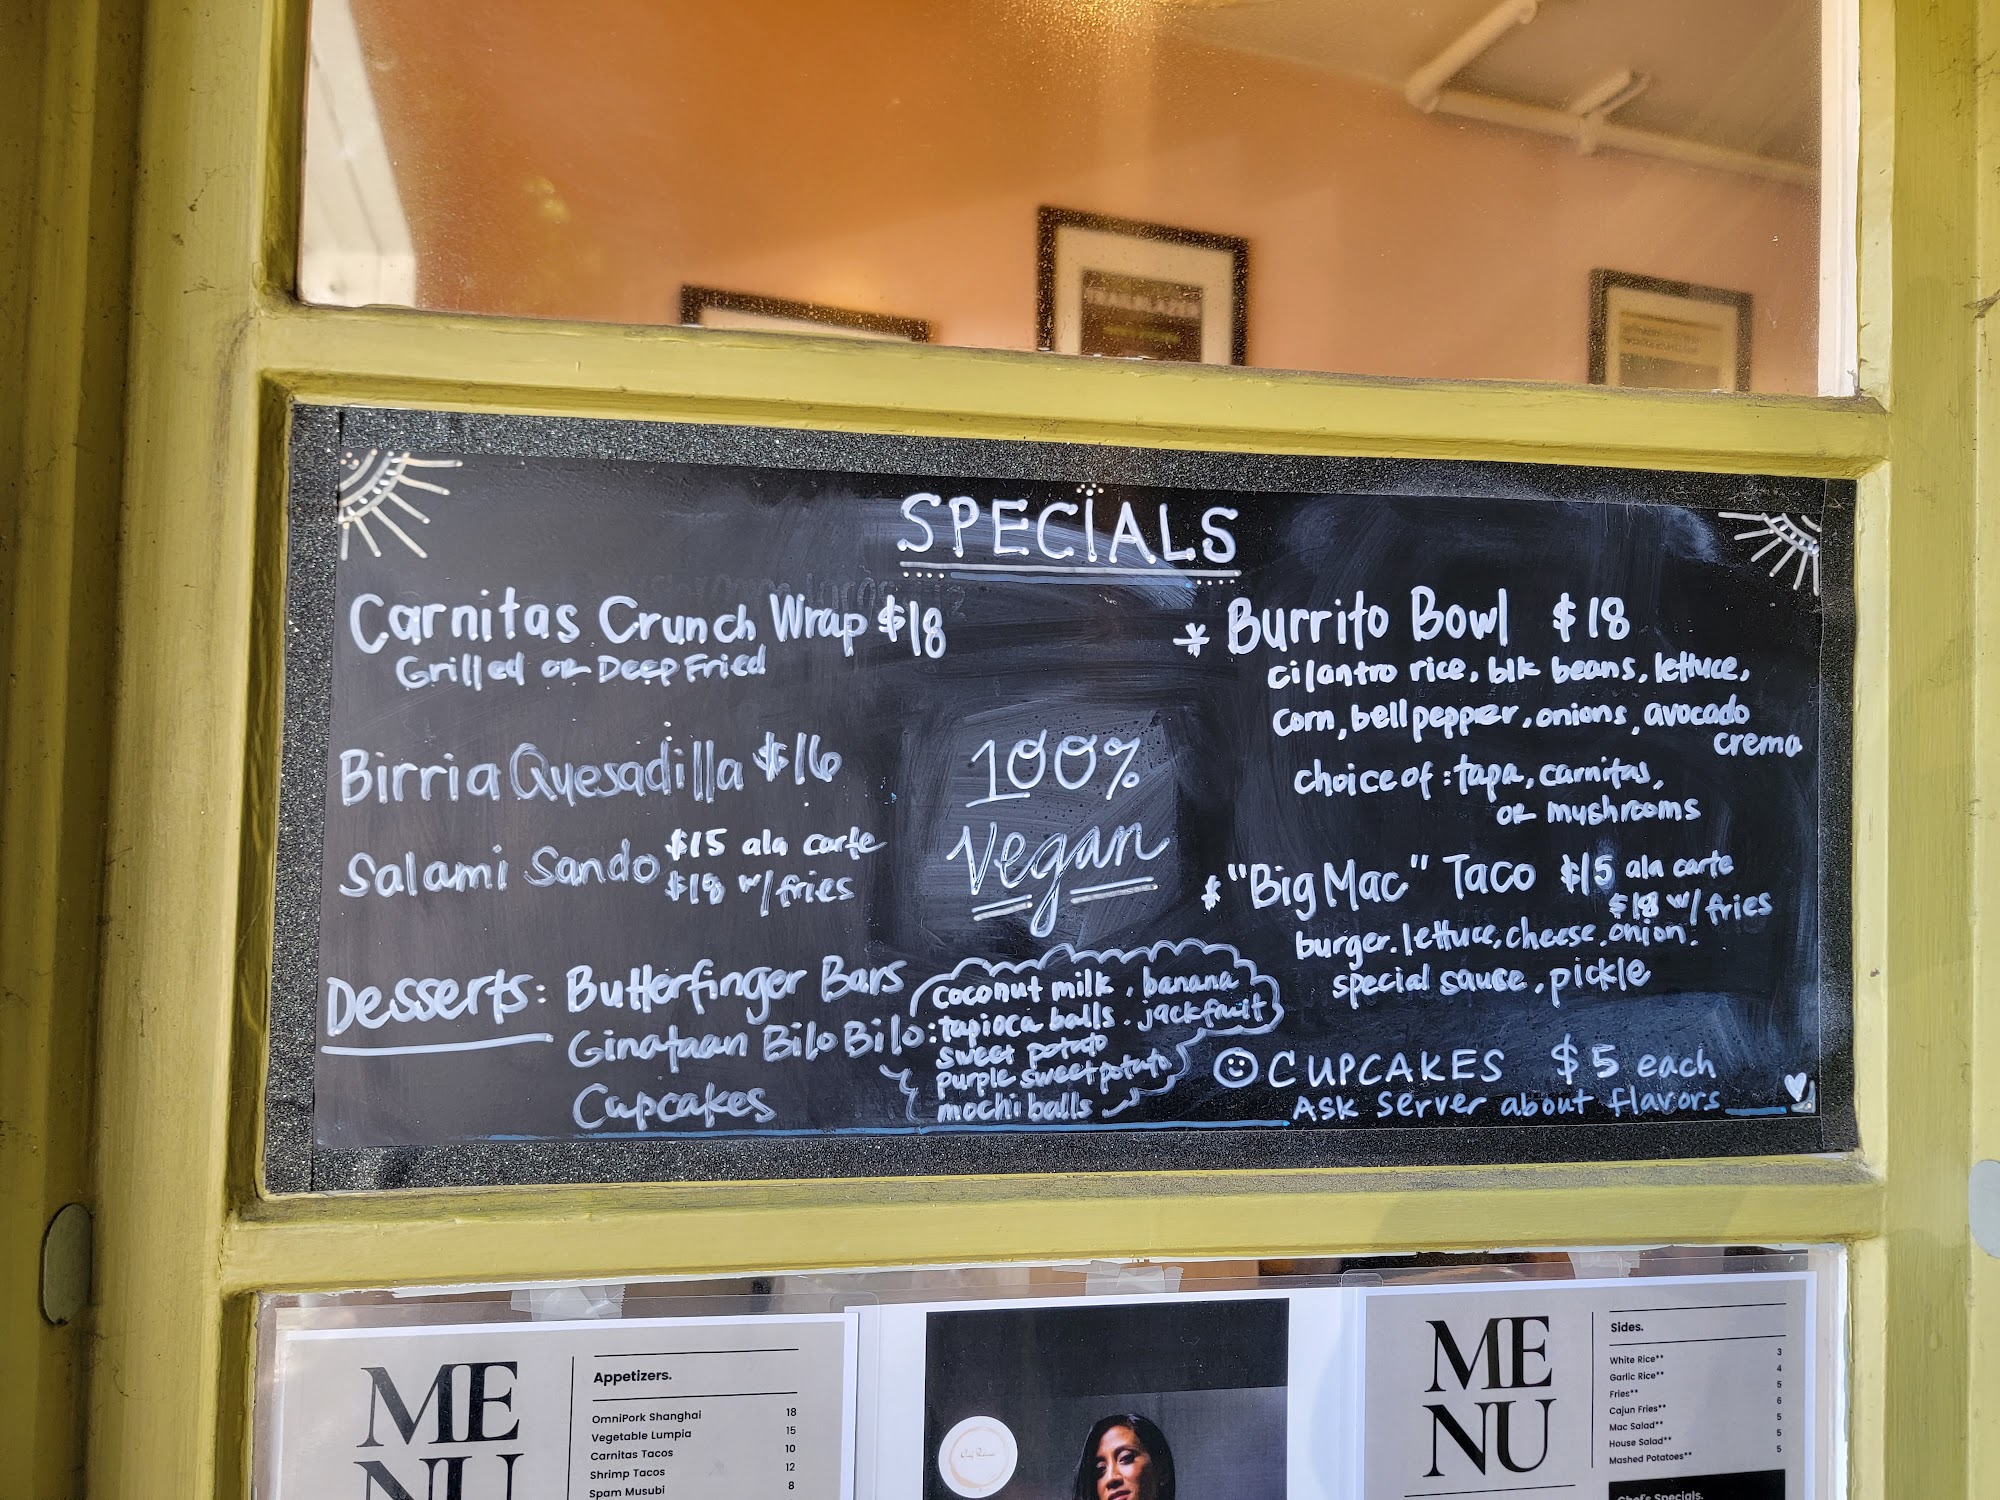 SPECIALS
Carnitas Crunch Wrap $18
Grilled or Deep Fried
Birria Quesadilla $16
Salami Sando $15 ala carte
$18 w/fries
100%
Vegan
* Burrito Bowl $18
cilantro rice, blk beans, lettuce,
corn, bell pepper, onions, avocado
crema
choice of: tapa, carnitas,
or mushrooms
* "Big Mac" Taco $15 ala carte
$18 w/fries
burger. lettuce, cheese. onion.
special sauce, pickle
Desserts: Butterfinger Bars
Ginataan Bilo Bilo:
Cupcakes
coconut milk, banana
tapioca balls. jackfruit
sweet potato
purple sweet potato
mochi balls
CUPCAKES $5 each
Ask server about flavors
MENU
Appetizers.
OmniPork Shanghai 18
Vegetable Lumpia 15
Carnitas Tacos 10
Shrimp Tacos 12
Spam Musubi 8
ME
NU
Sides.
White Rice** 3
Garlic Rice** 4
Fries** 5
Cajun Fries** 6
Mac Salad** 5
House Salad** 5
Mashed Potatoes** 5
Chef's Specials.